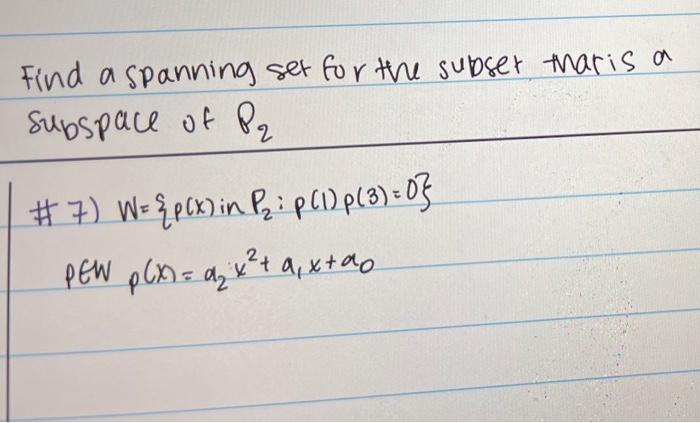 Find a spanning set for the subset that is a
subspace of P₂
#7) W={p(x) in P₂: p(1)p(3)=0}
pϵW p(x)=a₂x²+a₁x+a₀